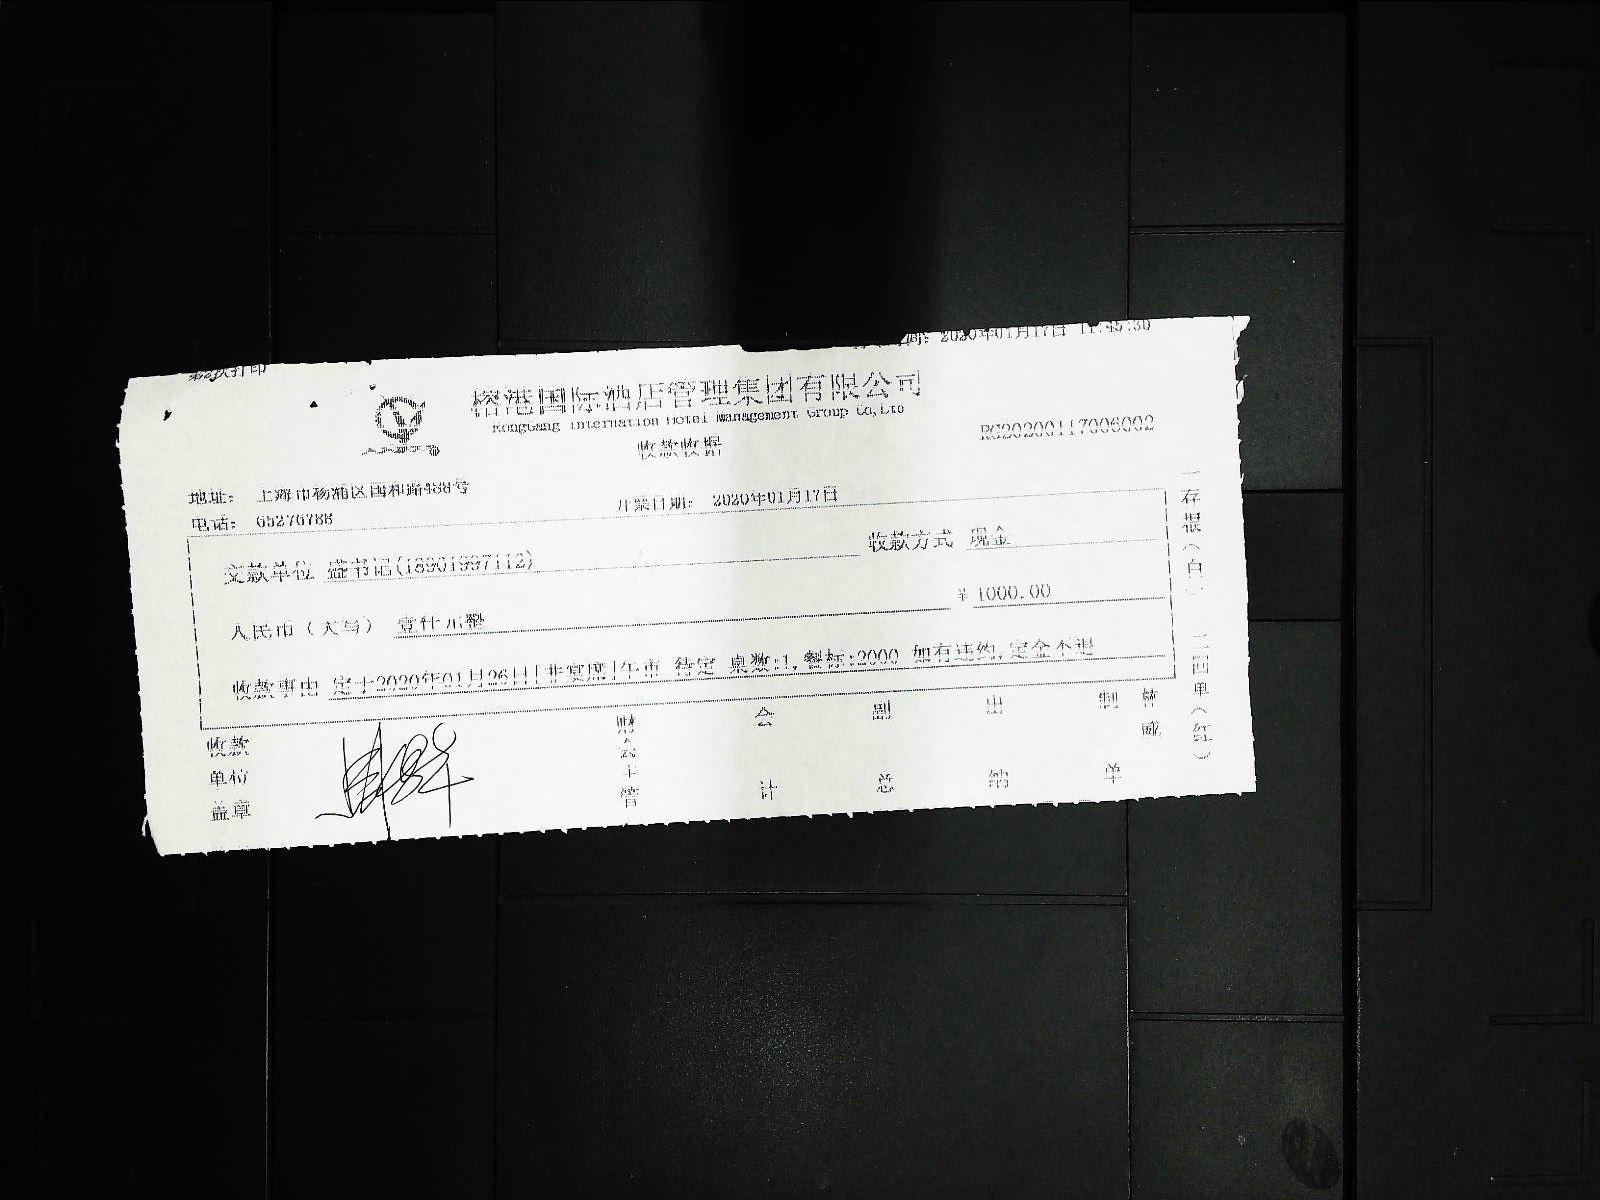 2020年01月17日 11:45:30
国际酒店管理集团有限公司
International Hotel Management Group Co,Ltd
收款收据
RG20200117006002
地址： 上海市杨浦区国和路488号
电话： 65276788
开票日期： 2020年01月17日
交款单位 盛书记(18901997112)
收款方式 现金
人民币（大写） 壹仟元整
￥1000.00
收款事由 定于2020年01月26日|非宴席|午市 待定 桌数:1,餐标:2000 如有违约,定金不退
收款
单位
盖章
会计
副总
出纳
制单
存根（白） 二四单（红）